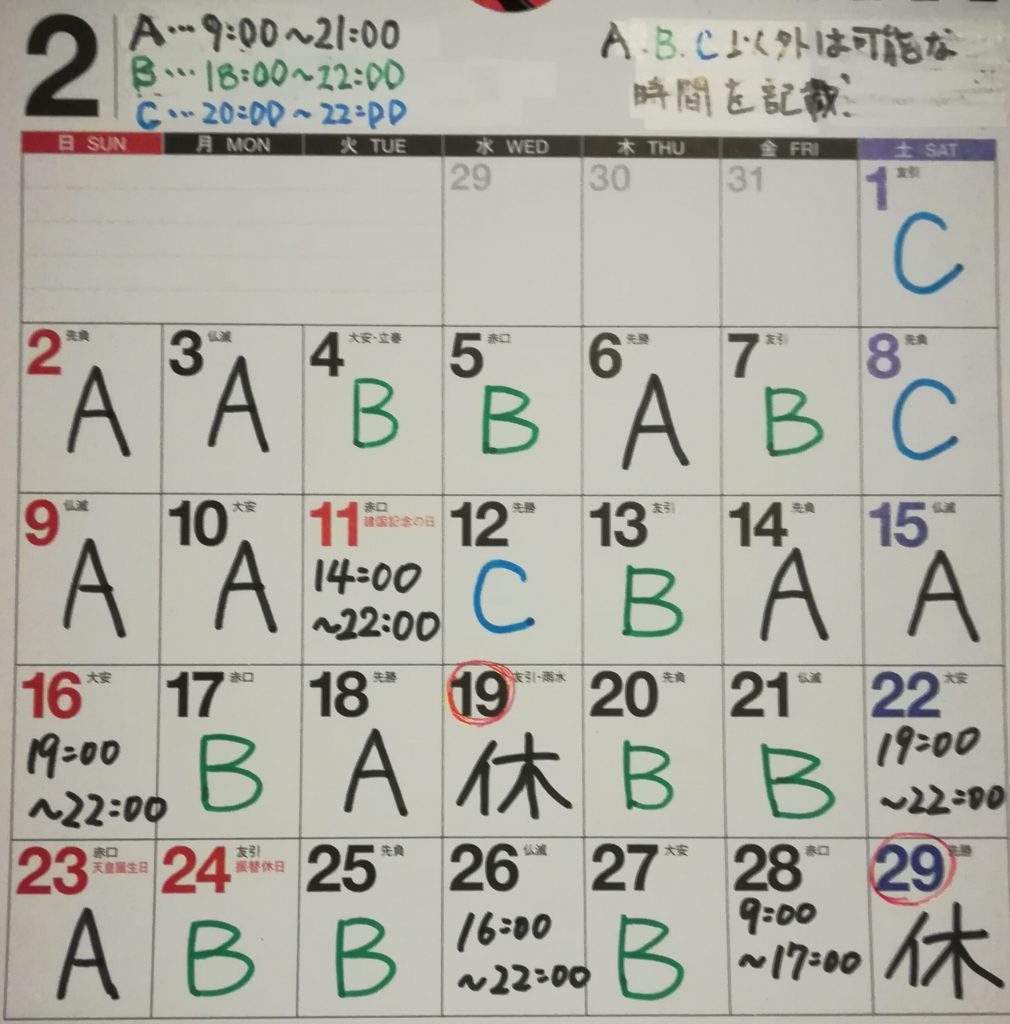 2
A…9:00～21:00
B…18:00～22:00
C…20:00～22:00
A.B.C以外は可能な
時間を記載
日 SUN 月 MON 火 TUE 水 WED 木 THU 金 FRI 土 SAT
29 30 31 1 友引
C
2 先負 3 仏滅 4 大安・立春 5 赤口 6 先勝 7 友引 8 先負
A A B B A B C
9 仏滅 10 大安 11 赤口 建国記念の日 12 先勝 13 友引 14 先負 15 仏滅
A A 14:00 ～22:00 C B A A
16 大安 17 赤口 18 先勝 19 友引・雨水 20 先負 21 仏滅 22 大安
19:00 ～22:00 B A 休 B B 19:00 ～22:00
23 赤口 天皇誕生日 24 友引 振替休日 25 先負 26 仏滅 27 大安 28 赤口 29 先勝
A B B 16:00 ～22:00 B 9:00 ～17:00 休